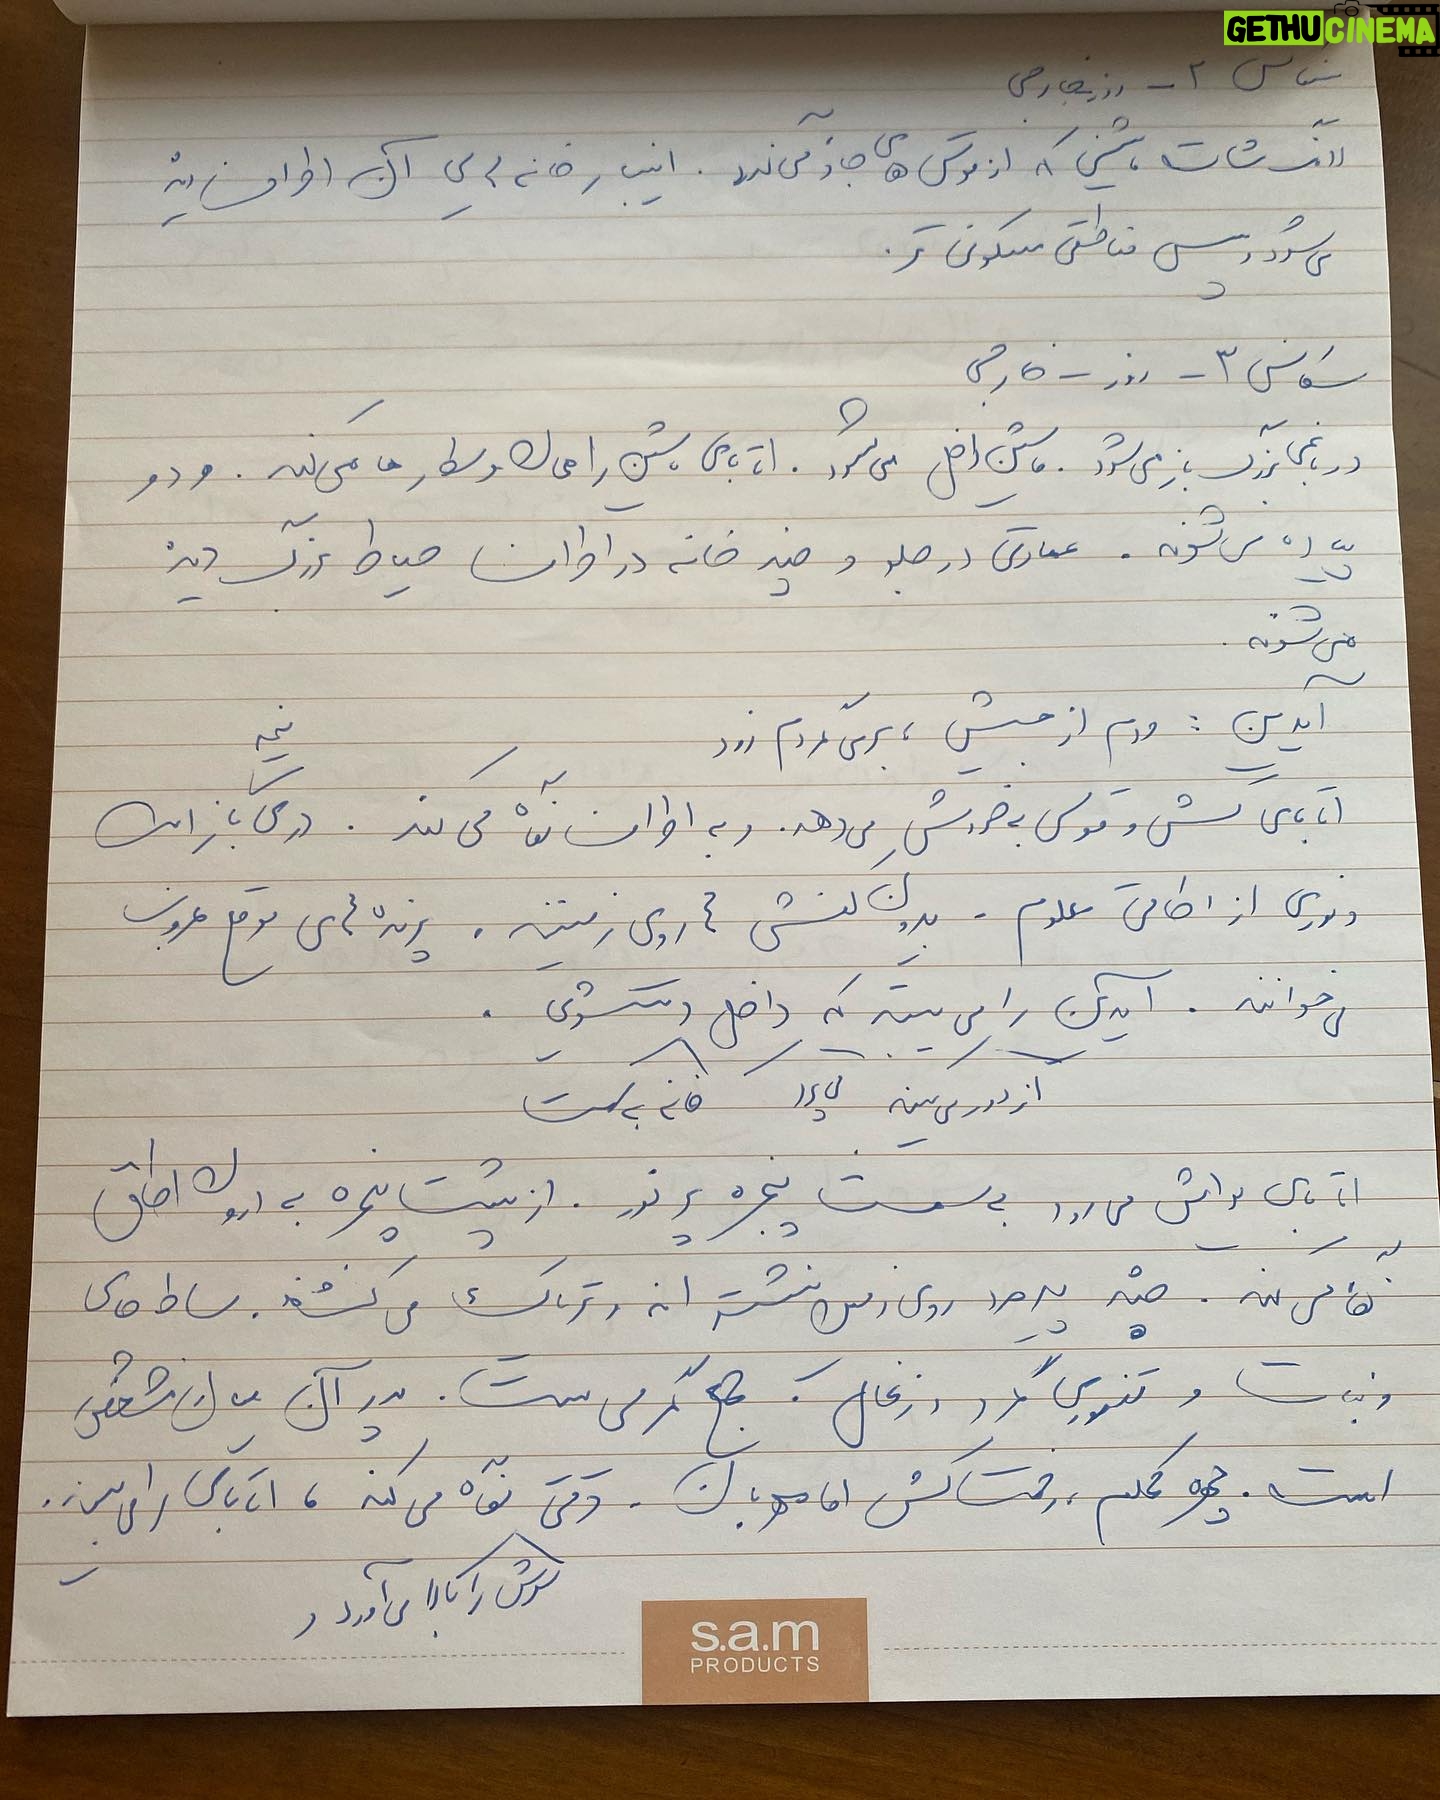 GETHUCINEMA
سکانس ۲ - روز خارجی
لانگ شات ماشینی که از موسی های جاده می گذرد. انبار خانه های آن اطراف دیده
می شود و سپس مناطقی مسکونی تر.
سکانس ۳ - روز - خارجی
در باغی بزرگ باز می شود. ماشین داخل می شود. اتابای ماشین را میان وسط رها می کند. و دو
پیاده می شوند. عمارتی در جلو و چند خانه در اطراف حیاط بزرگ دیده
می شوند.
آیدین: میرم از جیش، برمی گردم زود
نیمه
اتابای کش و قوسی به خودش می دهد. و به اطراف نگاه می کند. در باز است
و نوری از اطاقی معلوم. بیرون کفش ها روی زمینند. پرنده های موقع غروب
می خوانند. آیدین را می بیند که داخل دستشویی.
از دور می بیند می پرد خانه یکیست
اتابای یواش می رود به سمت پنجره پر نور. از پشت پنجره به درون اطاق
نگاه می کند. چند پیرمرد روی زمین نشسته اند و تریاک می کشند. بساط چای
و نبات و تنوری گرد و زغال که جمع گرمی ست. پدر آن میان مشخص
است. چهره محکم، زحمتکش اما مهربان. وقتی نگاه می کند، اتابای را می بیند.
سرش را بالا می آورد و
s.a.m
PRODUCTS